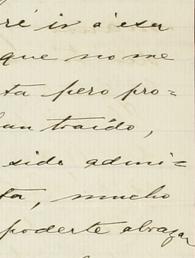 ré ir á esa
que no me
ta pero pro=
han traído,
sido admi=
ta, mucho
poderte abrazar